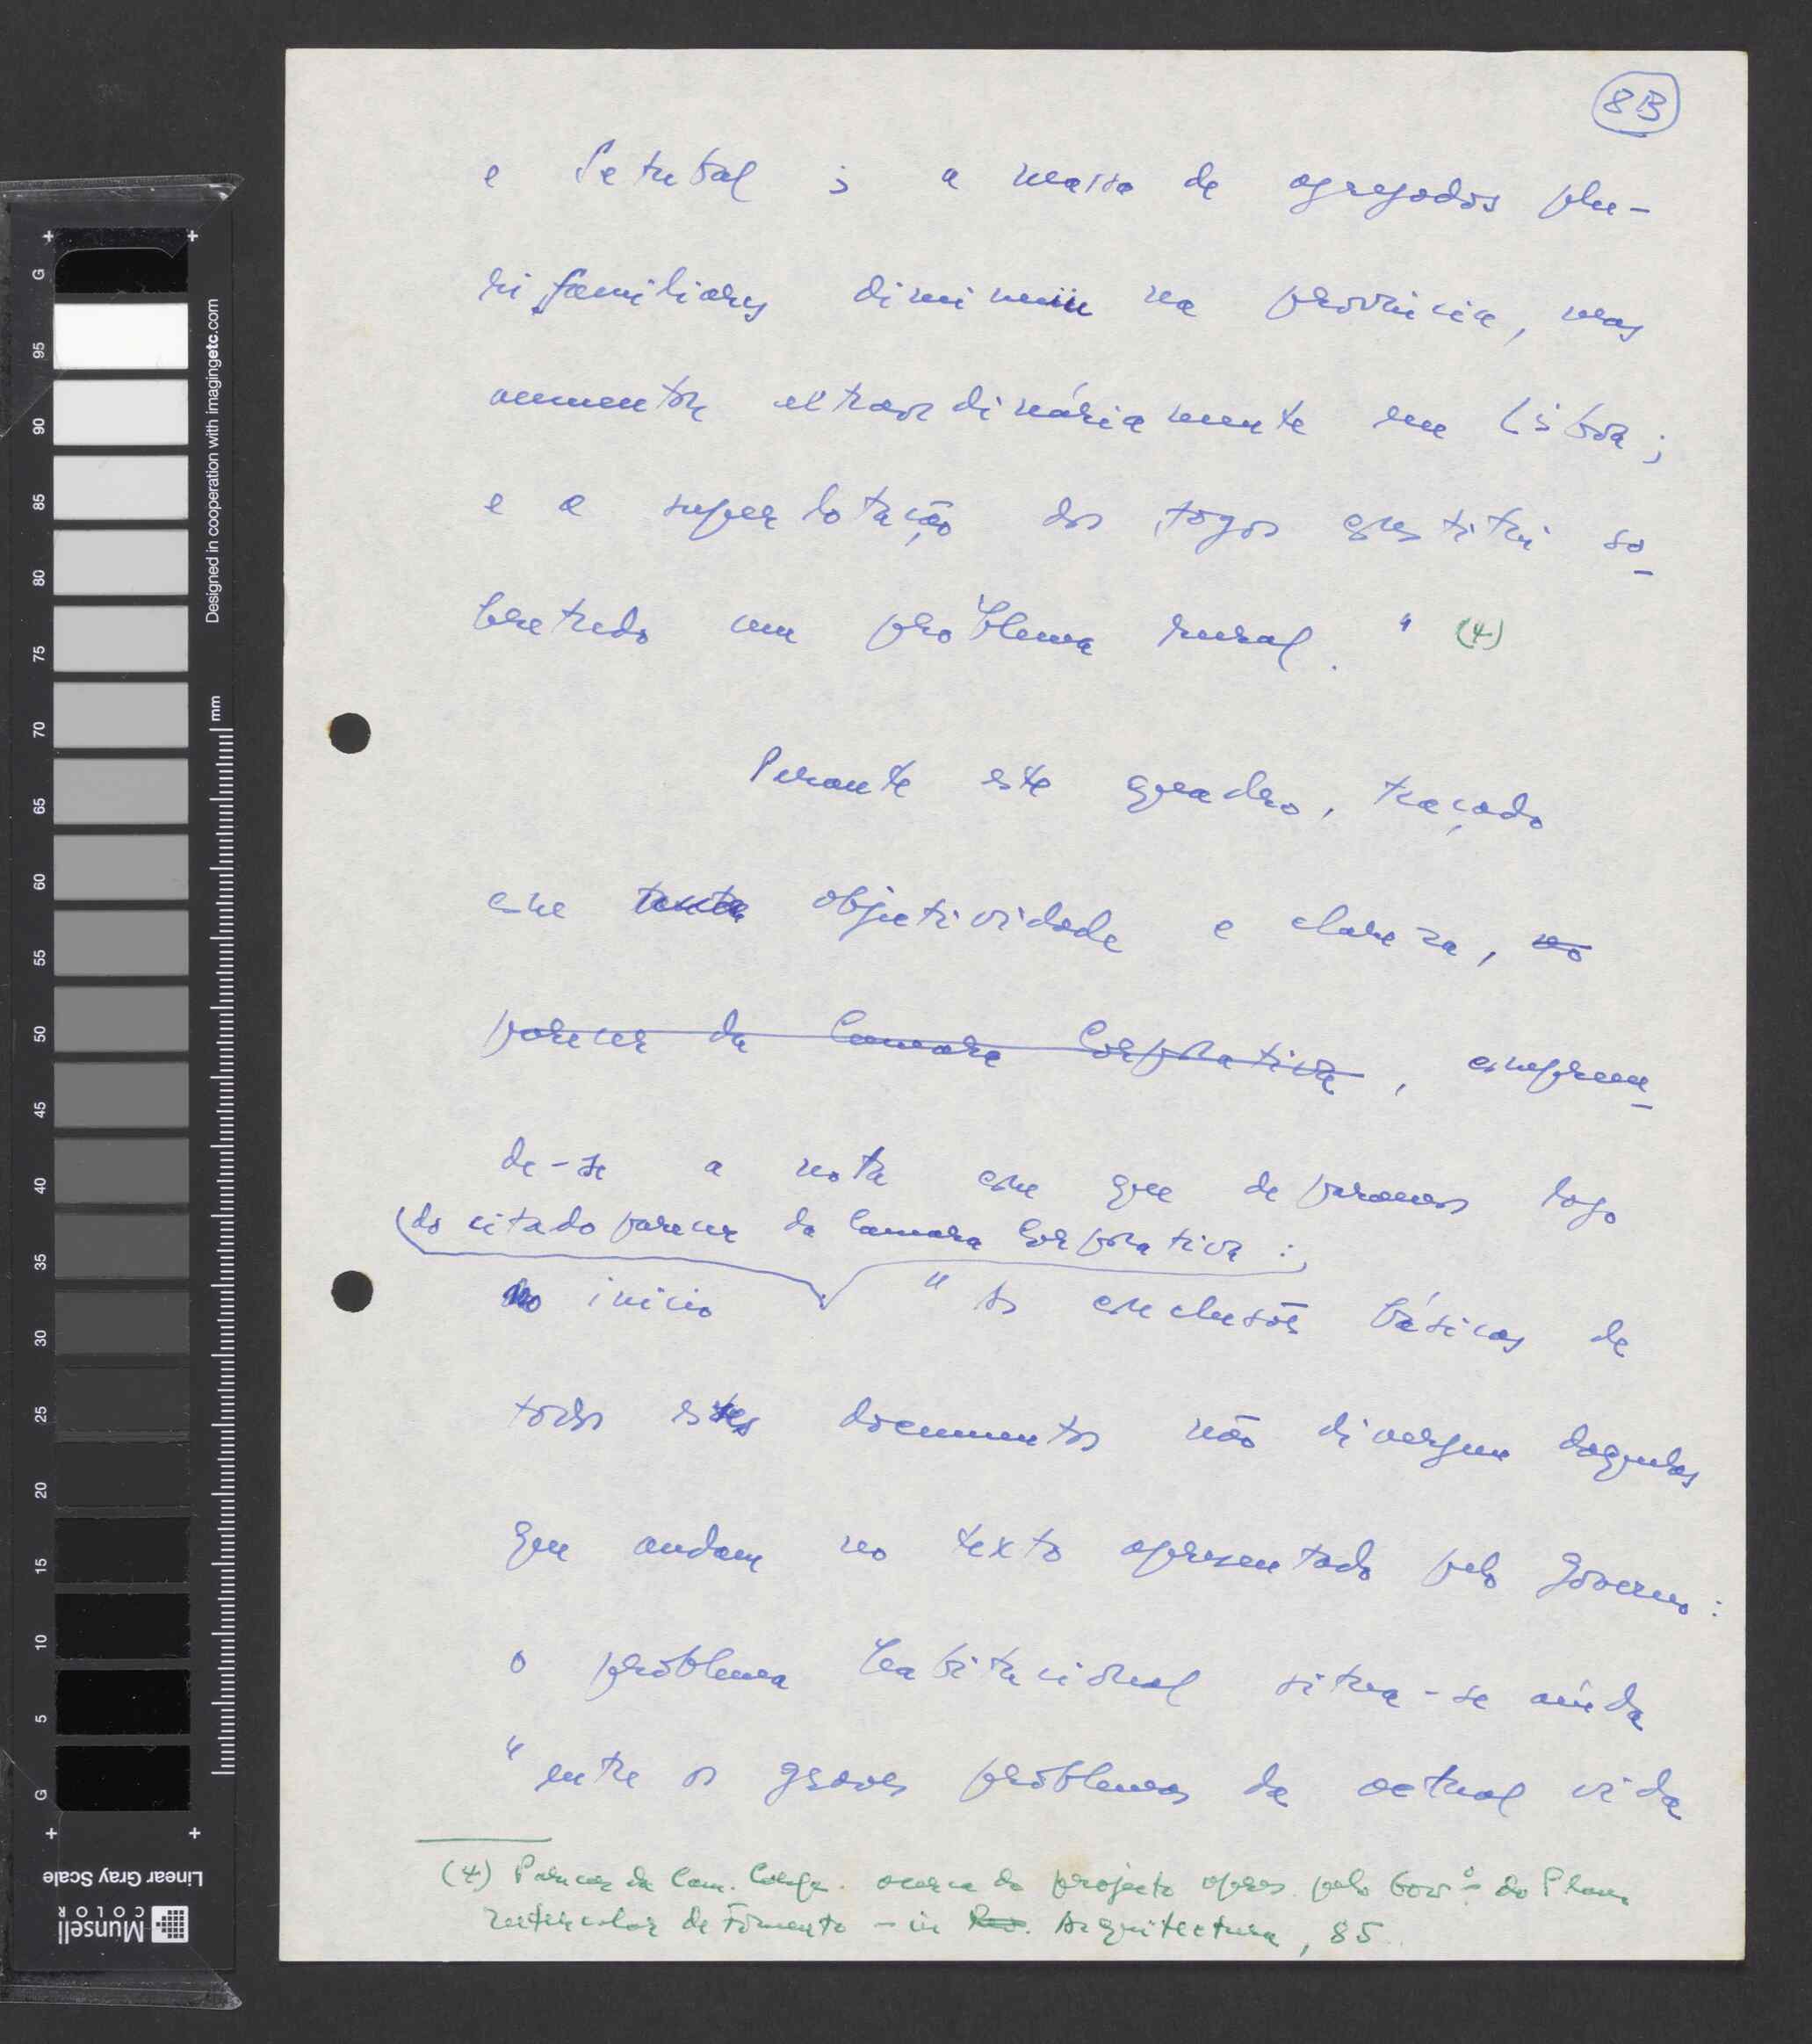 8B
e Setubal ; a massa de agregados plu-
rifamiliares diminui na provincia, mas
aumentou extraordináriamente em Lisboa ;
e a superlotação dos fogos constitui so
bretudo um problema rural. " (4)
Perante este quadro, traçado
com tanta objectividade e clareza, no
parecer da Camara Corporativa , compreen
de-se a nota com que deparamos logo
(do citado parecer da Camara Corporativa :
no inicio " As conclusões básicas de
todos estes documentos não divergem daquelas
que andam no texto apresentado pelo Governo :
o problema habitacional situa-se ainda
" entre os graves problemas da actual vida
(4) Parecer da Cam. Corp. acerca do projecto apres. pelo Govº do Plano
Intercalar de Fomento - in Rev. Arquitectura, 85
Designed in cooperation with imagingetc.com
mm
G 95 90 85 80 75 70 65 60 55 50 45 40 35 30 25 20 15 10 5 G
Linear Gray Scale
Munsell
COLOR